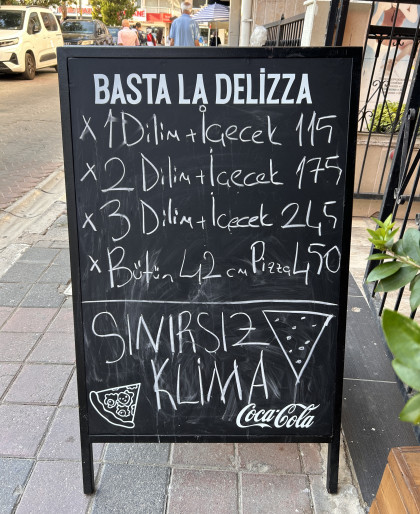 BASTA LA DELİZZA
x 1 Dilim + İçecek 115
x 2 Dilim + İçecek 175
x 3 Dilim + İçecek 245
x Bütün 42 cm Pizza 450
SINIRSIZ
KLİMA
Coca-Cola